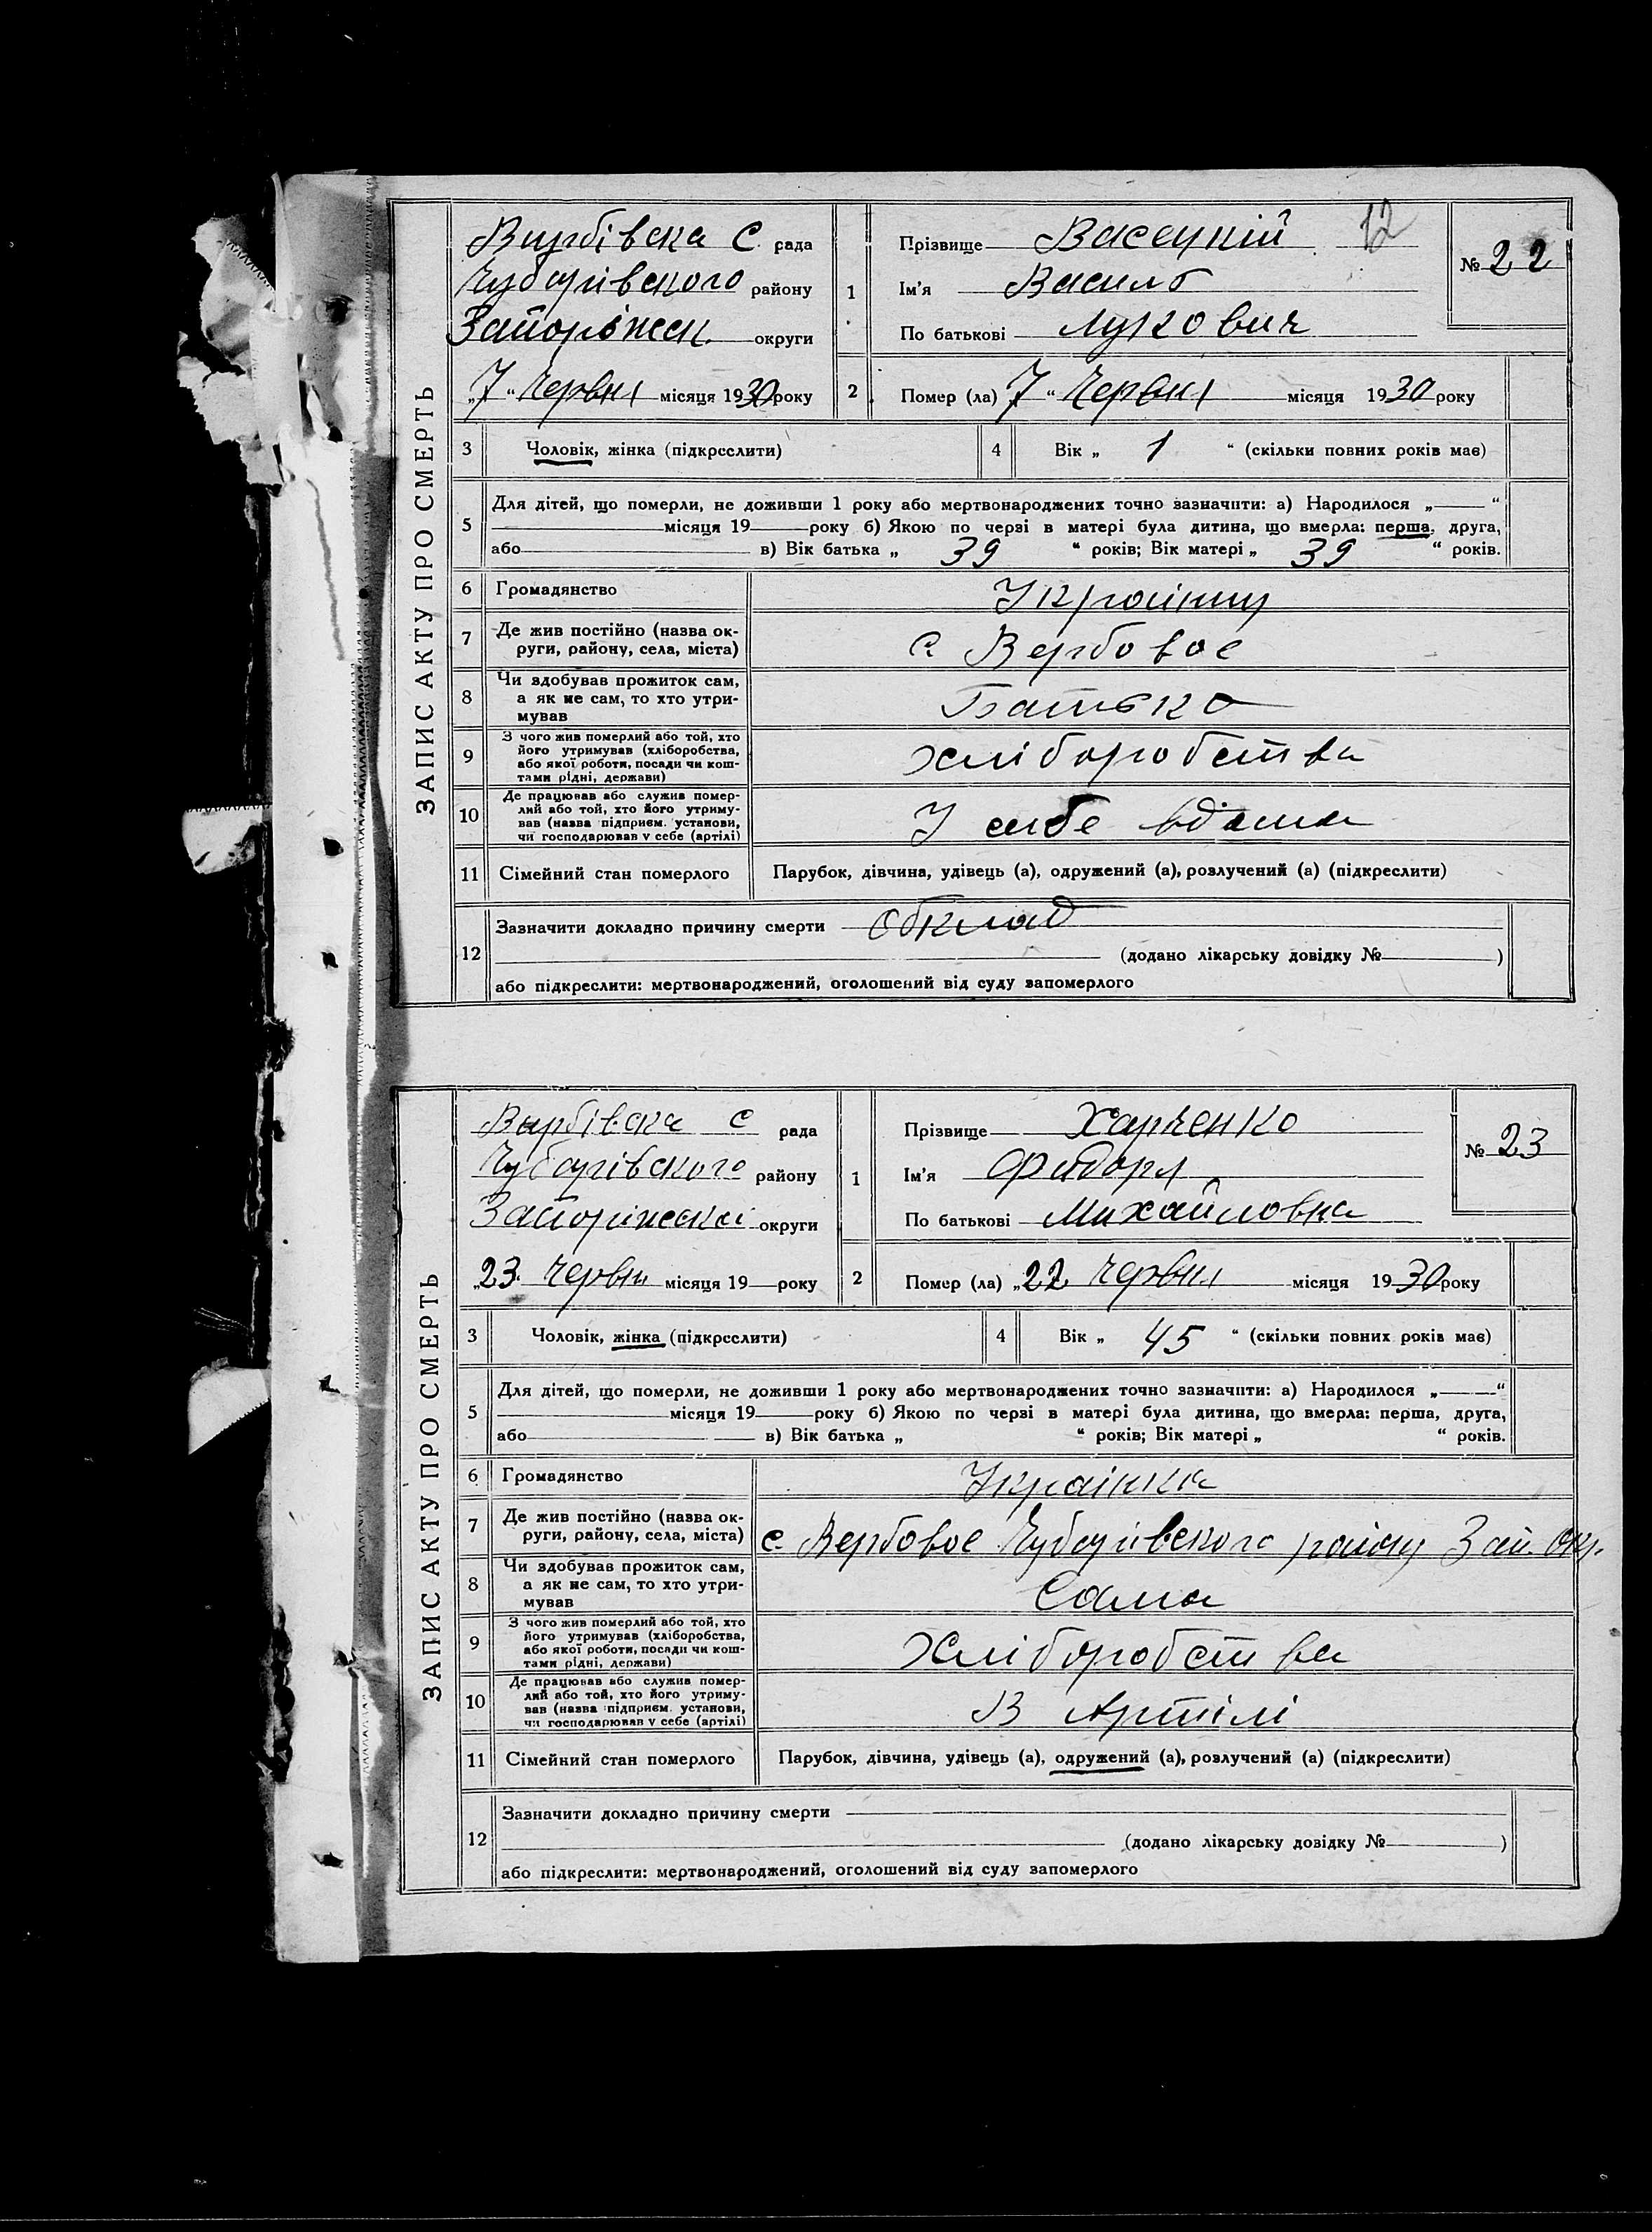 12
ЗАПИС АКТУ ПРО СМЕРТЬ
Вирбівска С. рада
Чубарівского району
Запоріжск. округи
„7“ Червня місяця 1930 року
1 Прізвище Васецкій
Ім'я Василь
По батькові Лукович
№ 22
2 Помер (ла) 7 “ Червня місяця 1930 року
3 Чоловік, жінка (підкреслити)
4 Вік „ 1 “ (скільки повних років має)
5 Для дітей, що померли, не доживши 1 року або мертвонароджених точно зазначити: а) Народилося „ “
місяця 19 року б) Якою по черзі в матері була дитина, що вмерла: перша, друга,
або в) Вік батька „ 39 “ років; Вік матері „ 39 “ років.
6 Громадянство Україниц
7 Де жив постійно (назва ок-
руги, району, села, міста) с. Вербовое
8 Чи здобував прожиток сам,
а як не сам, то хто утри-
мував Батько
9 З чого жив померлий або той, хто
його утримував (хліборобства,
або якої роботи, посади чи кош-
тами рідні, держави) хліборобства
10 Де працював або служив помер-
лий або той, хто його утриму-
вав (назва підприєм. установи,
чи господарював у себе (артілі) У себе вдома
11 Сімейний стан померлого Парубок, дівчина, удівець (а), одружений (а), розлучений (а) (підкреслити)
12 Зазначити докладно причину смерти обклад
(додано лікарську довідку № )
або підкреслити: мертвонароджений, оголошений від суду запомерлого
ЗАПИС АКТУ ПРО СМЕРТЬ
Варбівска С рада
Чубарівского району
Запоріжскаі округи
„23. Червня місяця 19 року
1 Прізвище Харченко
Ім'я Фидора
По батькові Михайловна
№ 23
2 Помер (ла) „22 Червня місяця 1930 року
3 Чоловік, жінка (підкреслити)
4 Вік „ 45 “ (скільки повних років має)
5 Для дітей, що померли, не доживши 1 року або мертвонароджених точно зазначити: а) Народилося „ “
місяця 19 року б) Якою по черзі в матері була дитина, що вмерла: перша, друга,
або в) Вік батька „ “ років; Вік матері „ “ років.
6 Громадянство Українка
7 Де жив постійно (назва ок-
руги, району, села, міста) с. Вербовое Чубарівского району Зап. Окр.
8 Чи здобував прожиток сам,
а як не сам, то хто утри-
мував Сама
9 З чого жив померлий або той, хто
його утримував (хліборобства,
або якої роботи, посади чи кош-
тами рідні, держави) Хліборобства
10 Де працював або служив помер-
лий або той, хто його утриму-
вав (назва підприєм. установи,
чи господарював у себе (артілі) В Артілі
11 Сімейний стан померлого Парубок, дівчина, удівець (а), одружений (а), розлучений (а) (підкреслити)
12 Зазначити докладно причину смерти
(додано лікарську довідку № )
або підкреслити: мертвонароджений, оголошений від суду запомерлого